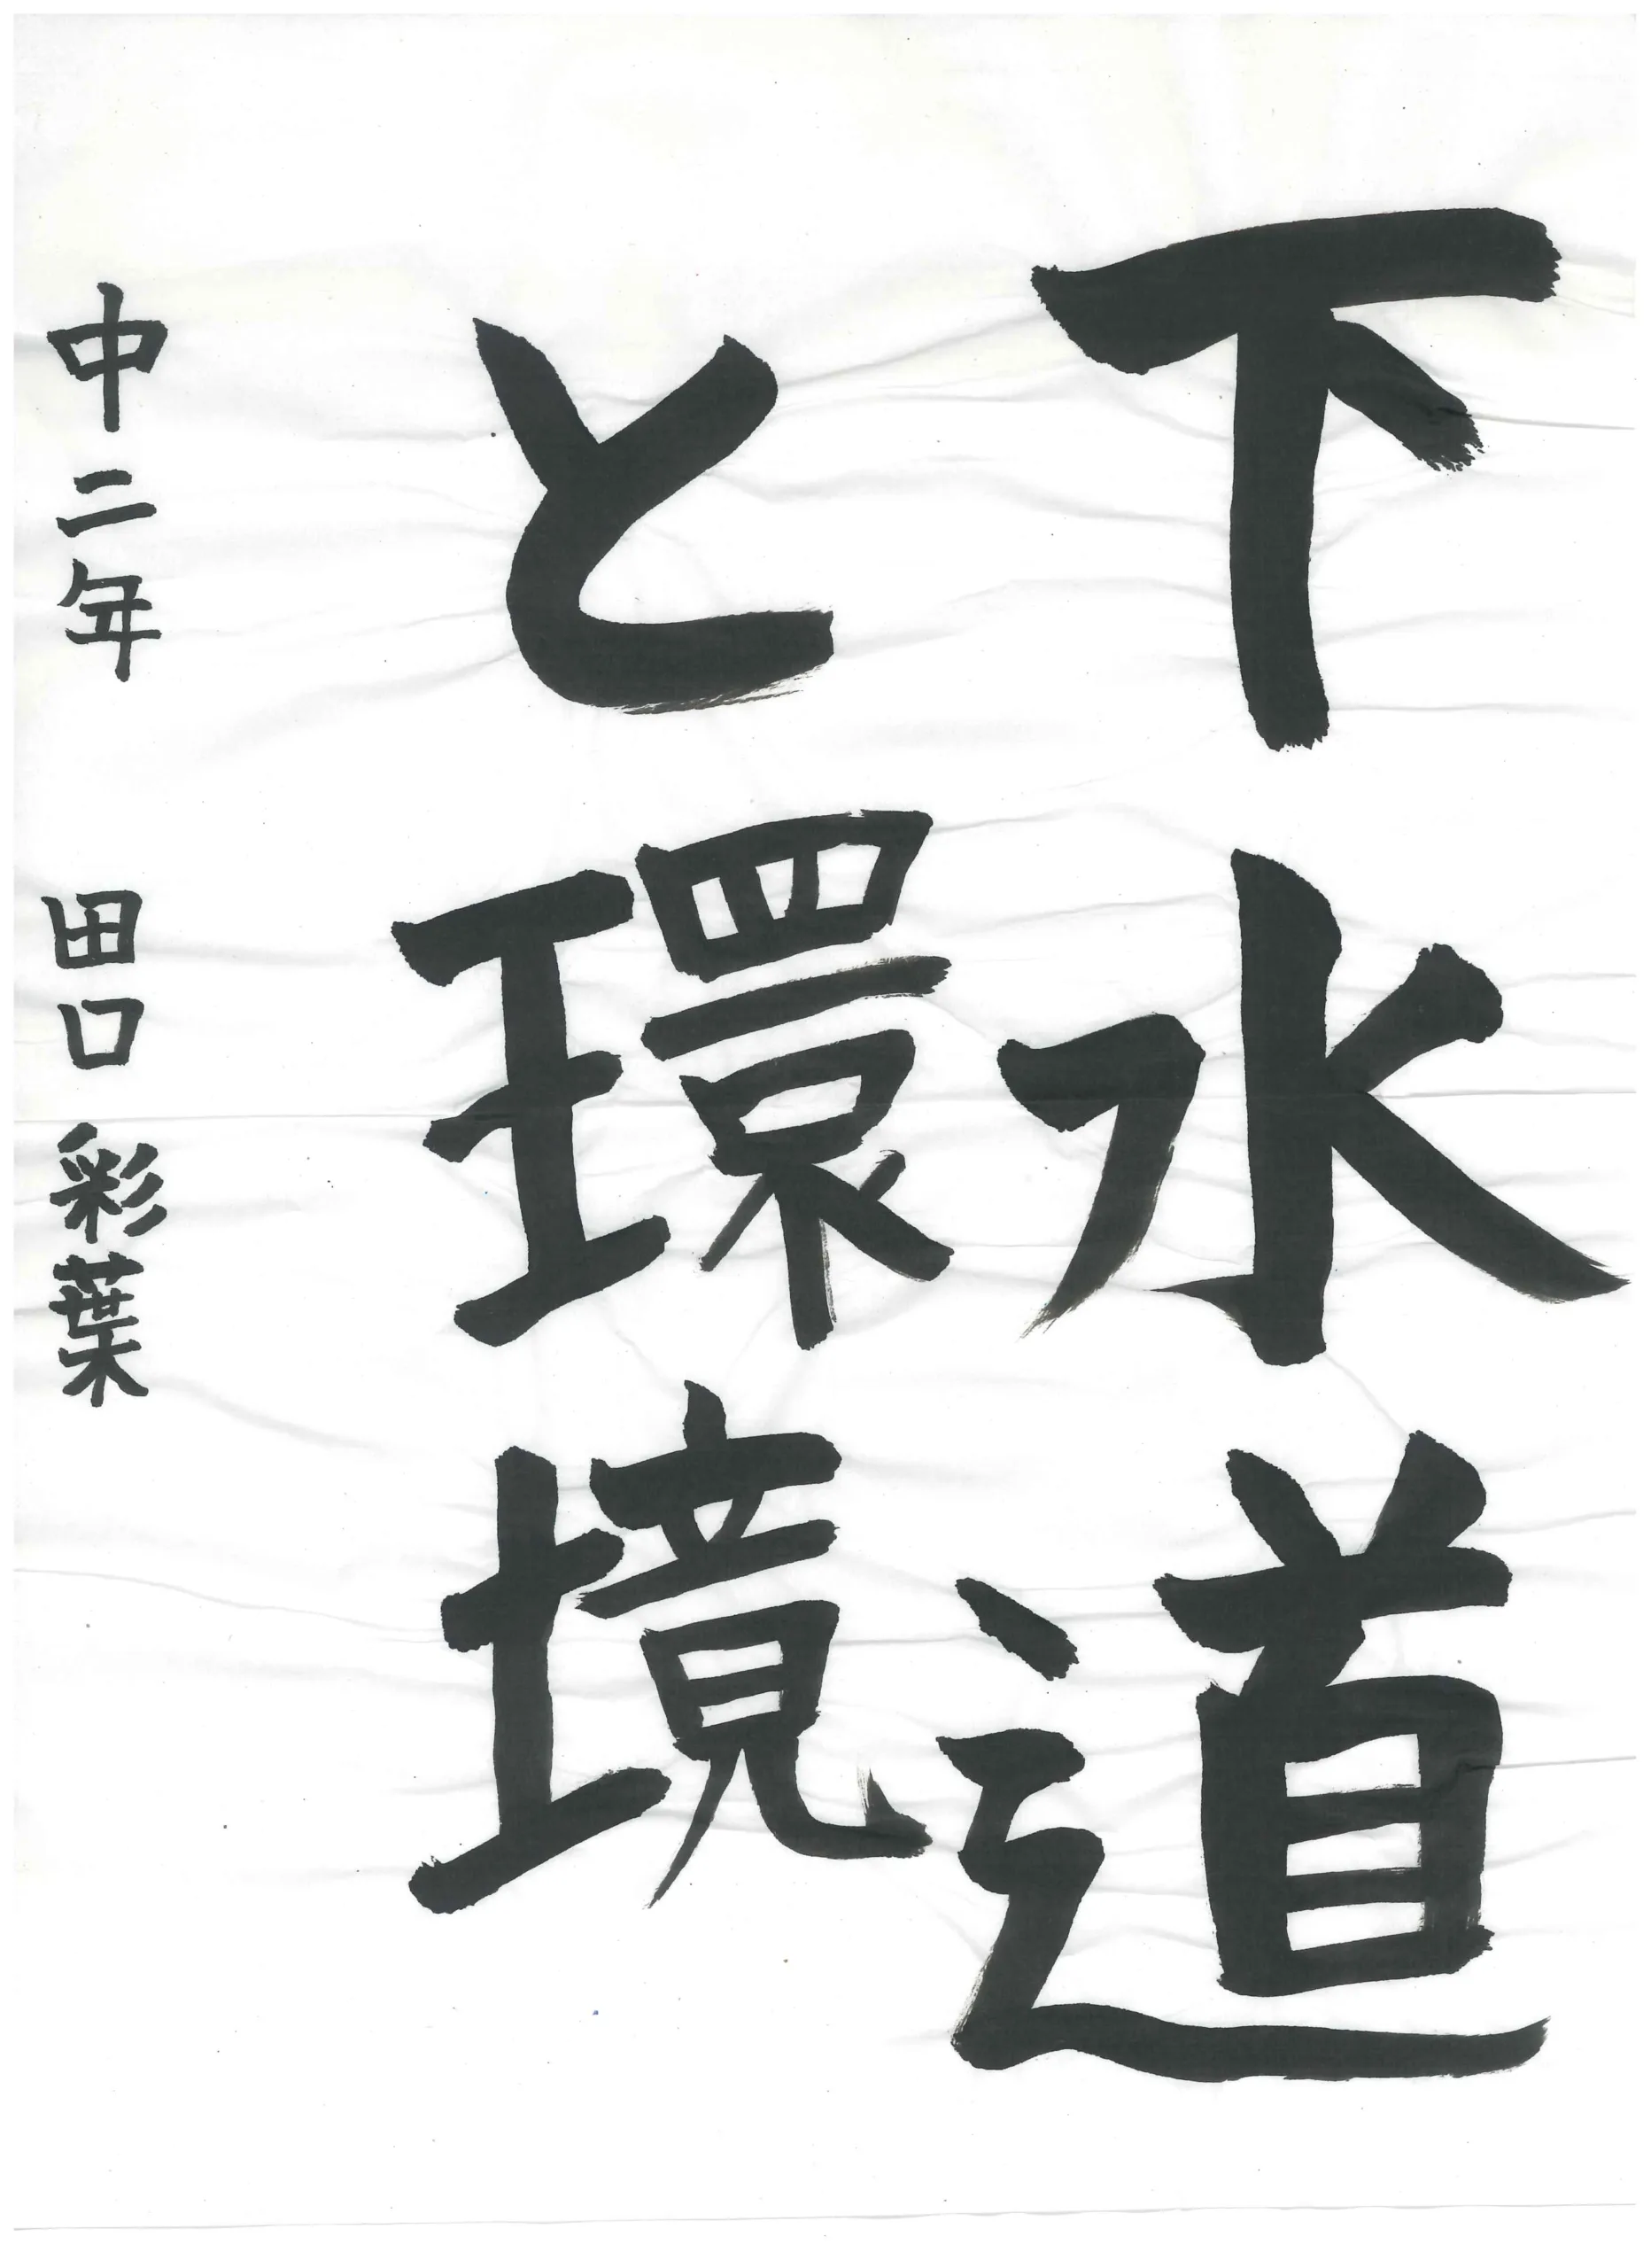 下水道
と環境
中二年 田口彩葉